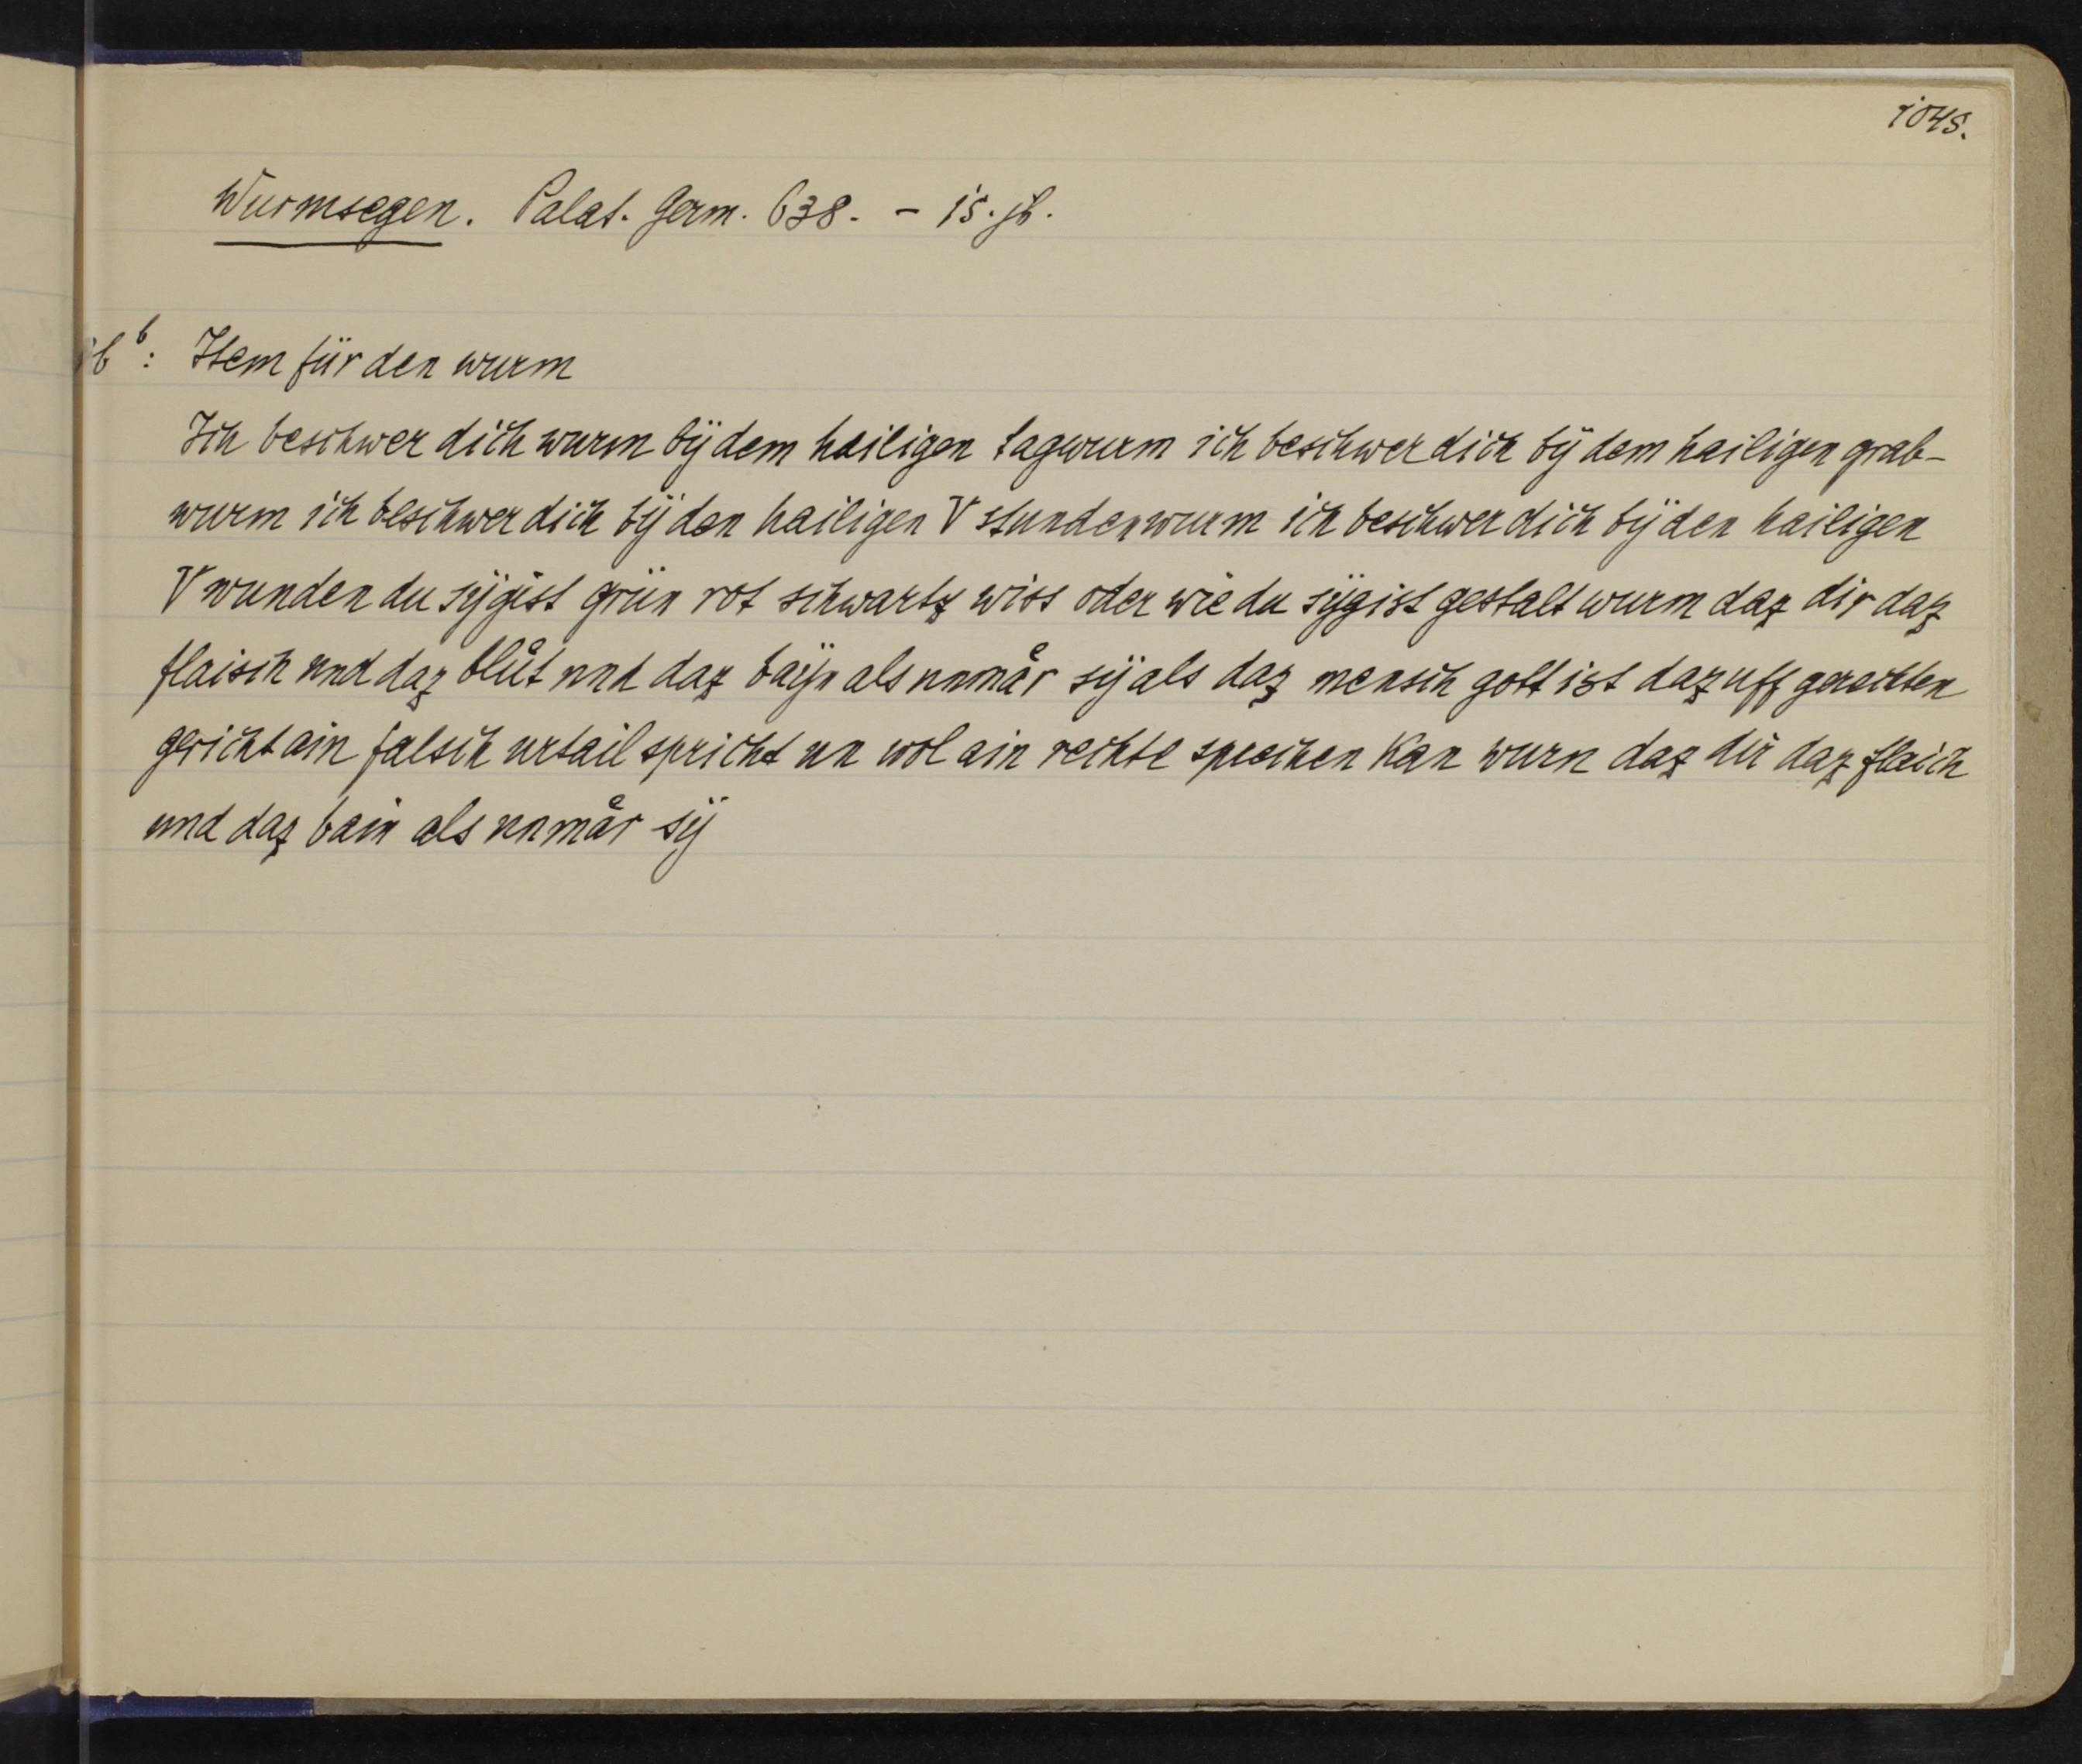 1045.
Wurmsegen. Palat. Germ. 638. – 15. jh.
6ᵇ: Item für den wurm
Ich beschwer dich wurm bÿ dem hailigen tagwurm ich beschwer dich bÿ dem hailigen grab-
wurm ich beschwer dich bÿ den hailigen V stunden wurm ich beschwer dich bÿ den hailigen
V wunden du sÿgist grün rot schwartz wiss oder wie du sÿgist gestalt wurm daz dir daz
flaisch und daz blůt und daz baÿn als unmaͤr sÿ als daz mensch gott ist daz uff gerechten
gericht ain falsch urtail spricht un wol ain rechte sprechen kan wurn daz dir daz flaich
und daz bain als unmaͤr sÿ